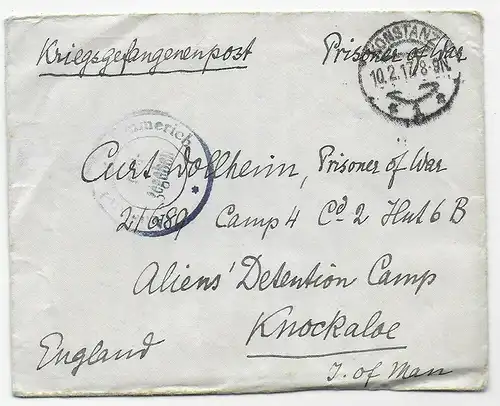 Kriegsgefangenenpost Prisoner of War
KONSTANZ
10.2.17. 8-9N
1
Emmerich
Curt Dollheim, Prisoner of War
Camp 4 Cd 2 Hut 6 B
Aliens' Detention Camp
Knockaloe
England
I. of Man